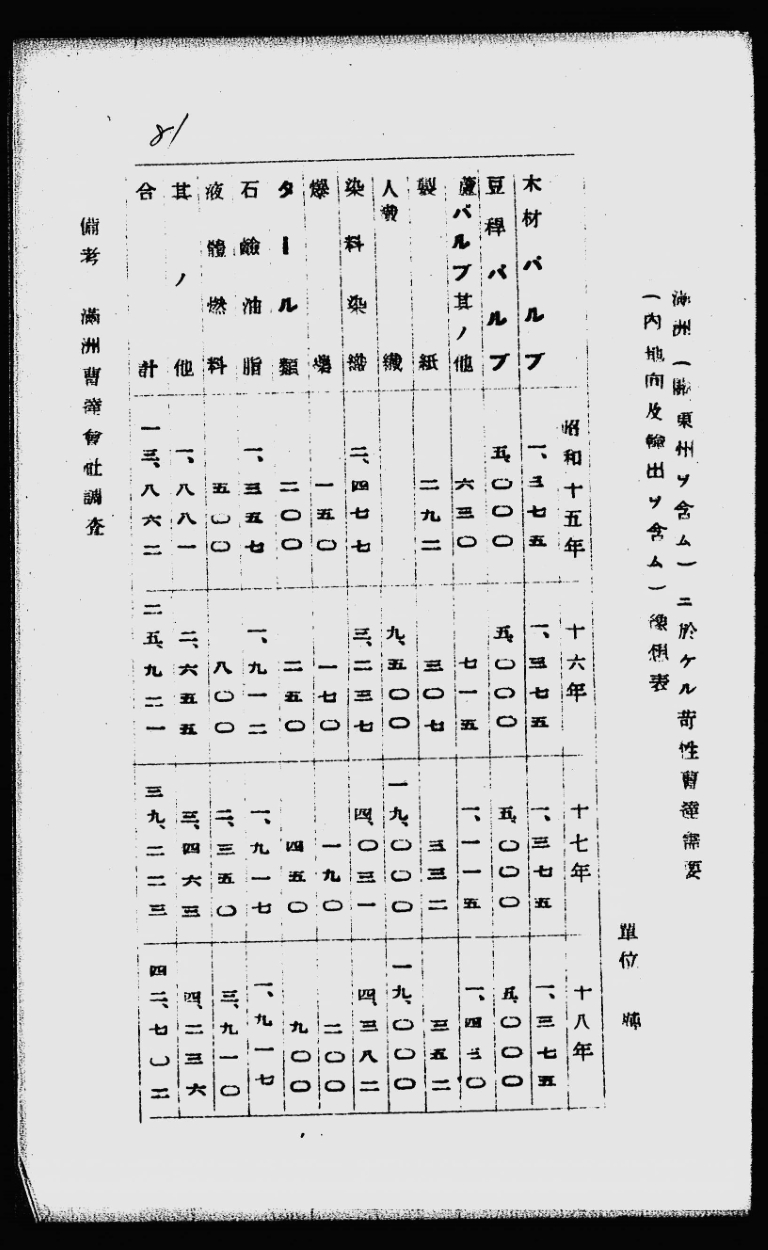 滿洲(關東州ヲ含ム)ニ於ケル苛性曹達需要
(內地向及輸出ヲ含ム)豫想表
單位 瓲
昭和十五年 十六年 十七年 十八年
木材パルプ 一、三七五 一、三七五 一、三七五 一、三七五
豆稈パルプ 五、〇〇〇 五、〇〇〇 五、〇〇〇 五、〇〇〇
蘆パルプ其ノ他 六三〇 七一五 一、一一五 一、四三〇
製紙 二九二 三〇七 三三二 三五二
人纖 九、五〇〇 一九、〇〇〇 一九、〇〇〇
染料染織 二、四七七 三、二三七 四、〇三一 四、三八二
爆藥 一五〇 一七〇 一九〇 二〇〇
タール類 二〇〇 二五〇 四五〇 九〇〇
石鹼油脂 一、三五七 一、九一二 一、九一七 一、九一七
液體燃料 五〇〇 八〇〇 二、三五〇 三、九一〇
其ノ他 一、八八一 二、六五五 三、四六三 四、二三六
合計 一三、八六二 二五、九二一 三九、二二三 四二、七〇二
備考 滿洲曹達會社調査
81